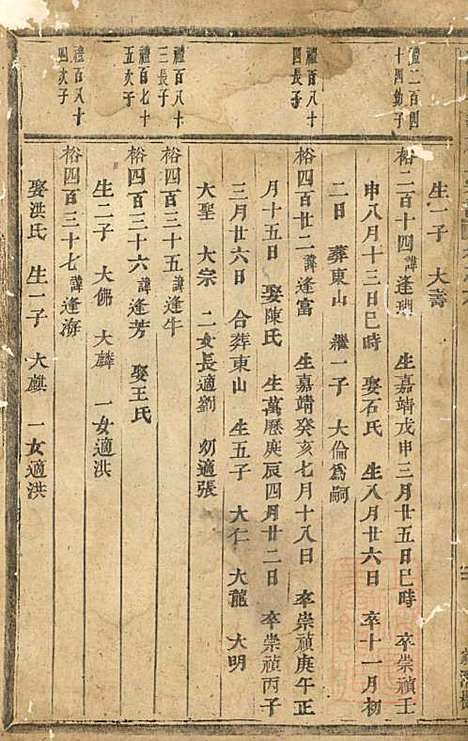 生一子　大壽
禮二百四
十四幼子
裕二百十四諱逢瑚　生嘉靖戊申三月廿五日巳時　卒崇禎壬
申八月十三日巳時　娶石氏　生八月廿六日　卒十一月初
二日　葬東山　繼一子　大倫爲嗣
禮百八十
四長子
裕四百廿二諱逢富　生嘉靖癸亥七月十八日　卒崇禎庚午正
月十五日　娶陳氏　生萬歷庚辰四月廿二日　卒崇禎丙子
三月廿六日　合葬東山　生五子　大仁　大龍　大明
大聖　大宗　二女長適劉　幼適張
禮百八十
三長子
裕四百三十五諱逢牛
禮百七十
五次子
裕四百三十六諱逢芳　娶王氏
生二子　大佛　大麟　一女適洪
禮百八十
四次子
裕四百三十七諱逢海
娶洪氏　生一子　大麒　一女適洪